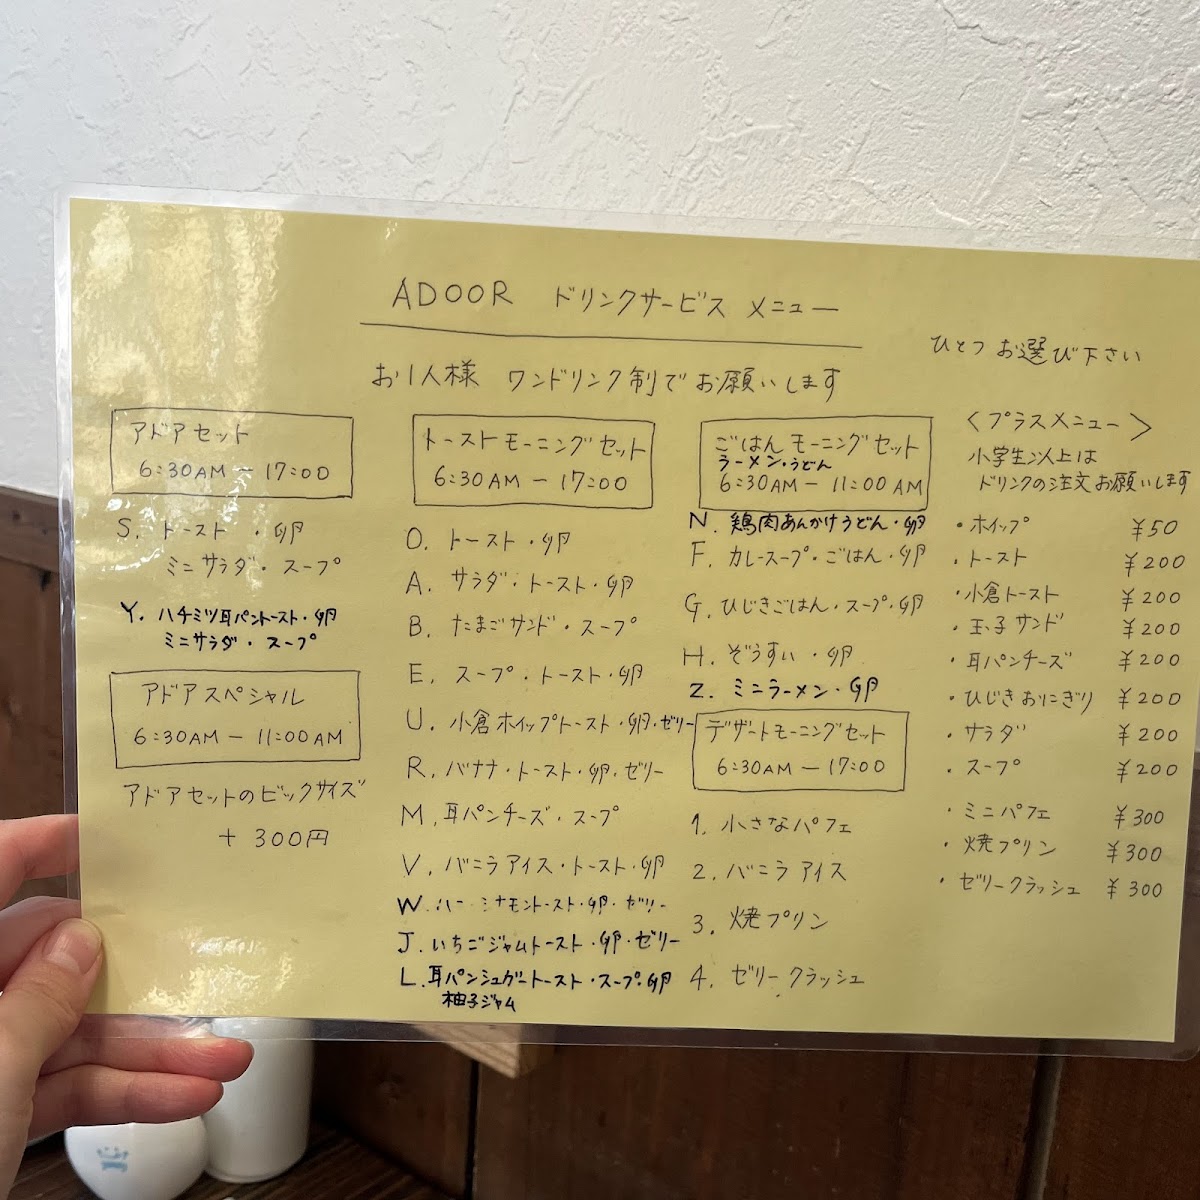 ADOOR ドリンクサービス メニュー
ひとつ お選び下さい
お1人様 ワンドリンク制で お願いします
アドアセット
6:30AM ー 17:00
S. トースト ・卵
ミニサラダ・スープ
Y. ハチミツ耳パントースト・卵
ミニサラダ・スープ
アドアスペシャル
6:30AM ー 11:00AM
アドアセットのビックサイズ
+ 300円
トーストモーニングセット
6:30AM ー 17:00
O. トースト・卵
A. サラダ・トースト・卵
B. たまごサンド・スープ
E. スープ・トースト・卵
U. 小倉ホイップトースト・卵・ゼリー
R. バナナ・トースト・卵・ゼリー
M. 耳パンチーズ・スープ
V. バニラアイス・トースト・卵
W. シナモントースト・卵・ゼリー
J. いちごジャムトースト・卵・ゼリー
L. 耳パンシュガートースト・スープ・卵
柚子ジャム
ごはん モーニングセット
ラーメン・うどん
6:30AM ー 11:00AM
N. 鶏肉あんかけうどん・卵
F. カレースープ・ごはん・卵
G. ひじきごはん・スープ・卵
H. ぞうすい ・卵
Z. ミニラーメン・卵
デザートモーニングセット
6:30AM ー 17:00
1. 小さなパフェ
2. バニラアイス
3. 焼プリン
4. ゼリークラッシュ
〈プラスメニュー〉
小学生以上は
ドリンクの注文お願いします
・ホイップ ¥50
・トースト ¥200
・小倉トースト ¥200
・玉子サンド ¥200
・耳パンチーズ ¥200
・ひじきおにぎり ¥200
・サラダ ¥200
・スープ ¥200
・ミニパフェ ¥300
・焼プリン ¥300
・ゼリークラッシュ ¥300